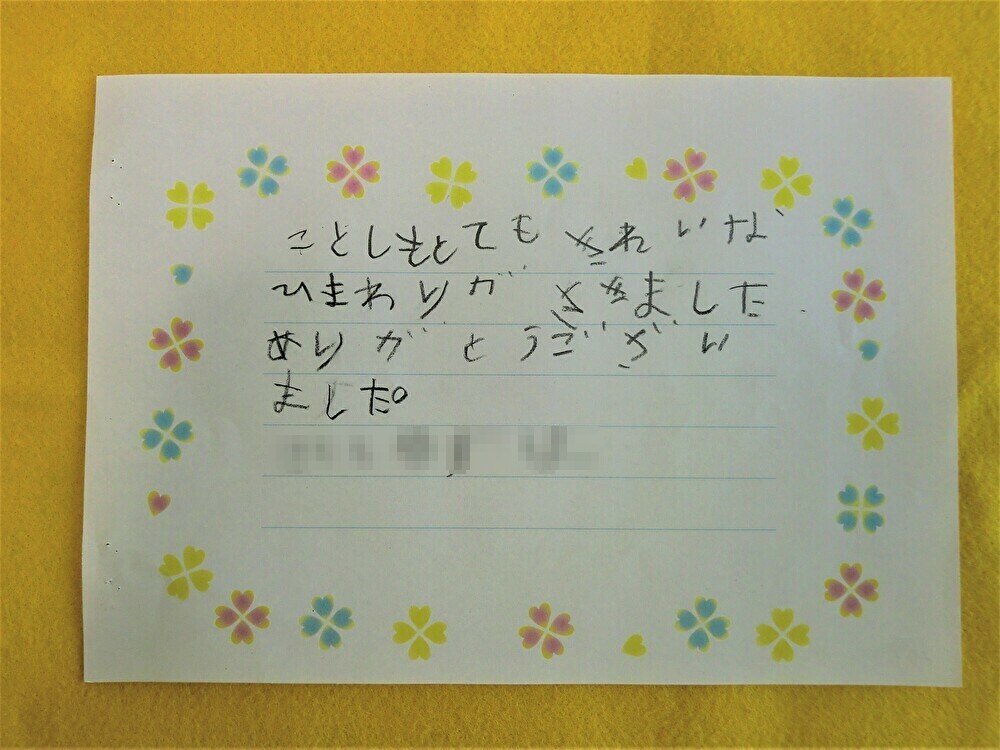 ことしもとても きれいな
ひまわりが さきました
ありがとうござい
ました。